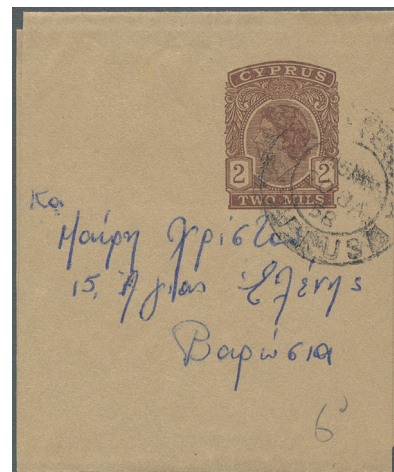 CYPRUS
2 2
TWO MILS
58
Κα
Μαίρη Χρίστου
15, Αγίας Ελένης
Βαρώσια
6